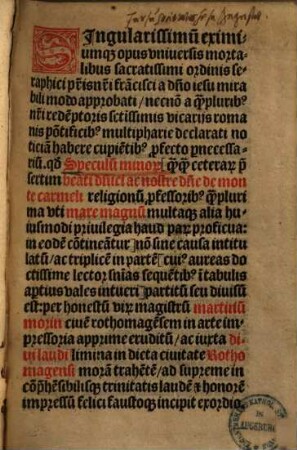 SIngularissimū eximi
umqꝫ opus vniuersis morta-
libus sacratissimi ordinis se-
raphici pr̄is nr̄i frācisci a dn̄o iesu mira
bili modo approbati / necnō a q̄pluribꝰ
nr̄i redēptoris sctissimis vicarijs roma
nis pōtificibꝰ multipharie declarati no
ticiā habere cupiētibꝰ ꝓfecto ꝑnecessa-
riū. qđ Speculū minoꝝ q̄q̄ ceteraꝝ p̄
sertim beati dn̄ici ac nostre dn̄e de mon
te carmeli religionū, ꝓfessoribꝰ q̄pluri
ma vti mare magnū multaqꝫ alia hu
iusmodi priuilegia haud paꝝ proficua:
in eodē cōtineātur nō sine causa intitu
latū / ac triplicē in partē cuiꝰ aureas do
ctissime lector sn̄ias sequētibꝰ ī tabulis
aptiꝰ vales intueri partitū seu diuisū
est: per honestū virꝝ magistrū martinū
morin ciuē rothomagēsem in arte im-
pressoria apprime eruditū / ac iuxta di-
ui laudi limina in dicta ciuitate Rotho
magensi morā trahētē / ad supreme in
cōp̄hēsibilisqꝫ trinitatis laudē ⁊ honorē
impressū felici faustoqꝫ incipit exordio.